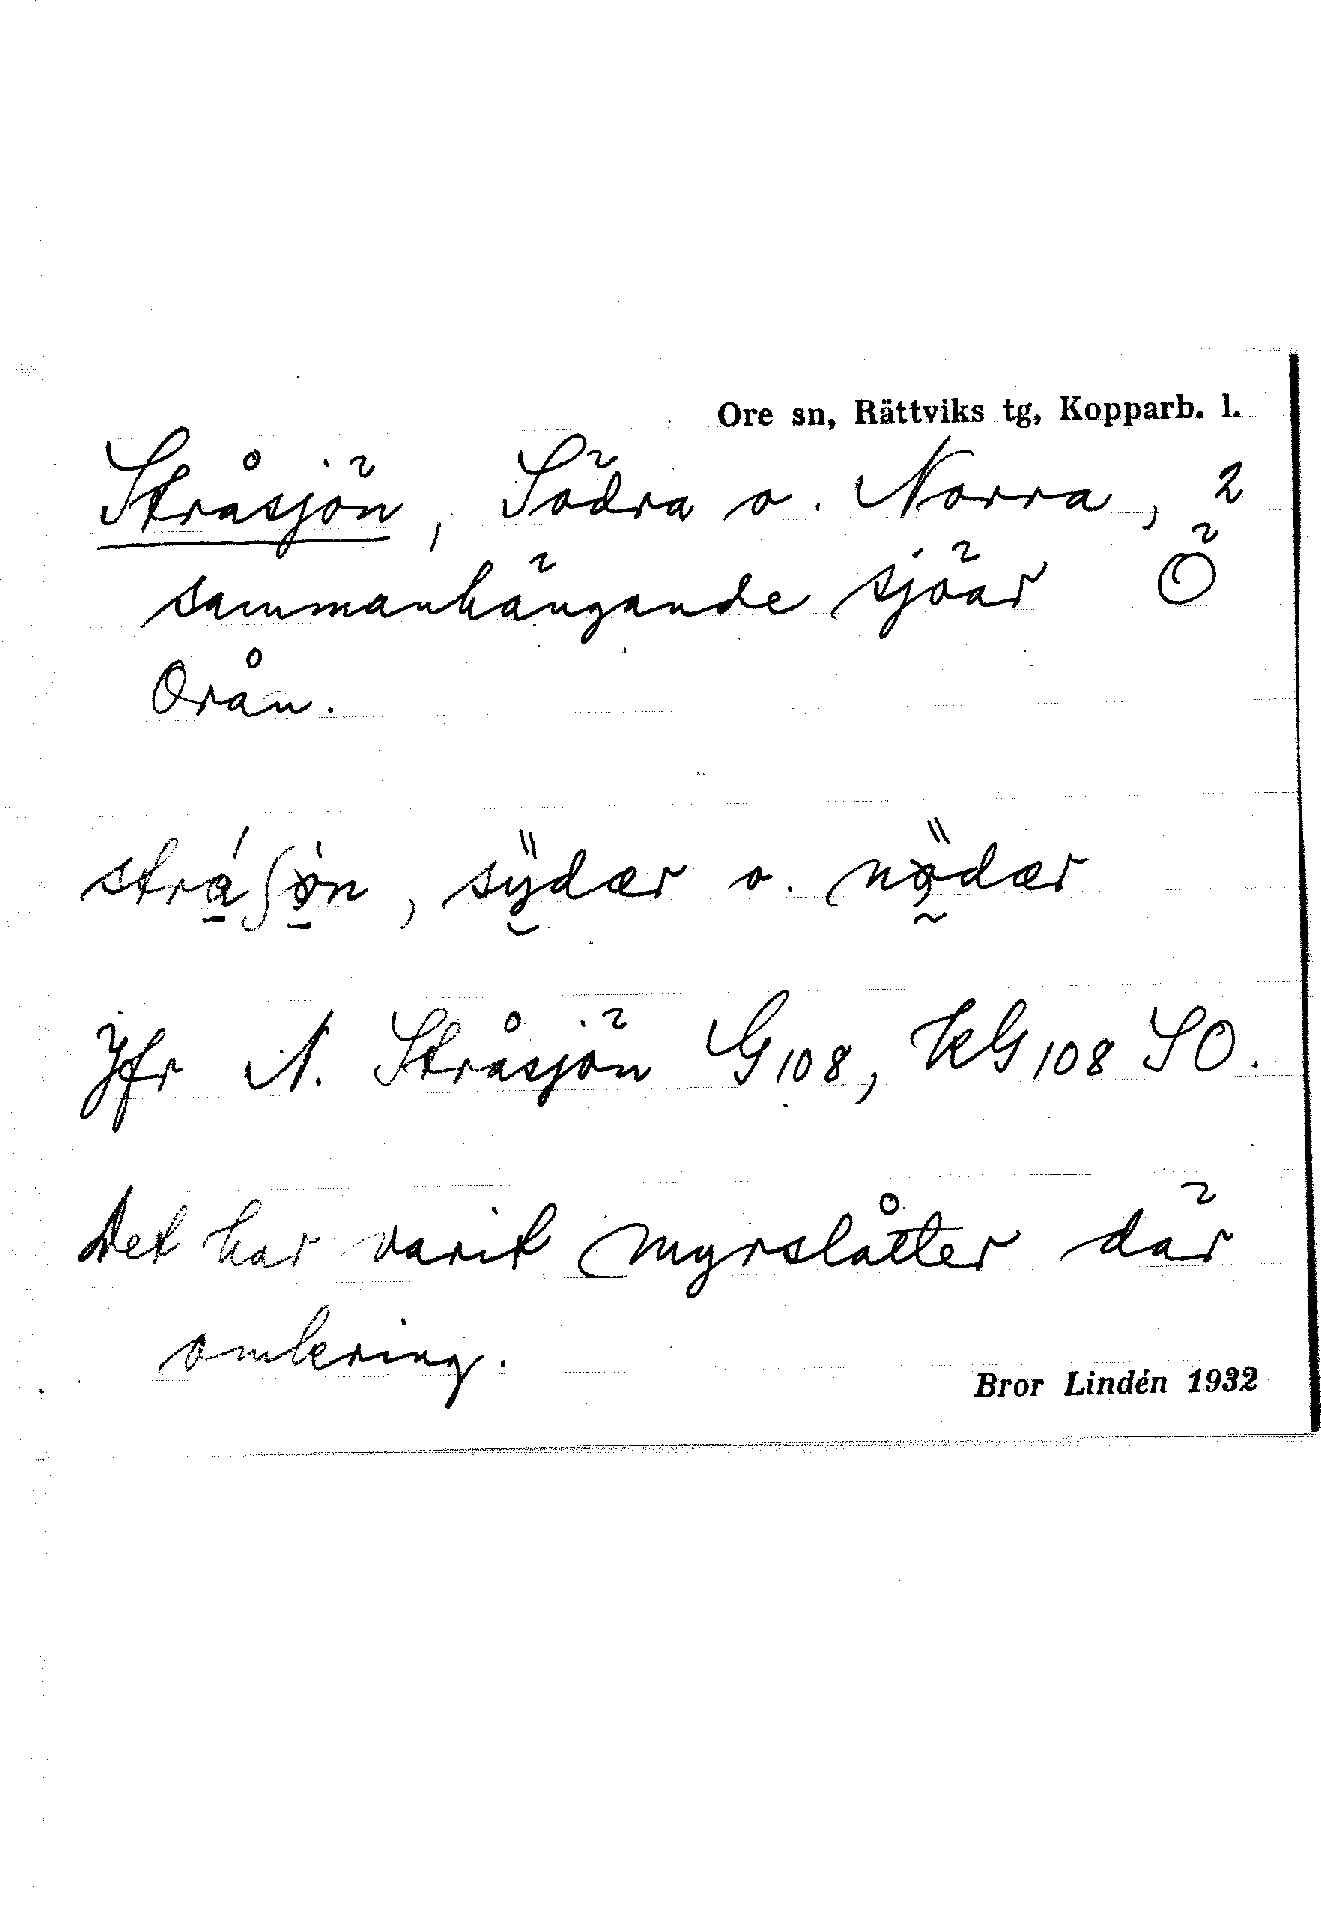 Ore sn, Rättviks tg, Kopparb. l.
Stråsjön, Södra o. Norra, 2
sammanhängande sjöar Ö
Orån.
strá̱ʃø̱̀n, sÿdær o. nø̈dær
Jfr N. Stråsjön G108, KG108 SO.
Det har varit myrslåtter där
omkring.
Bror Lindén 1932